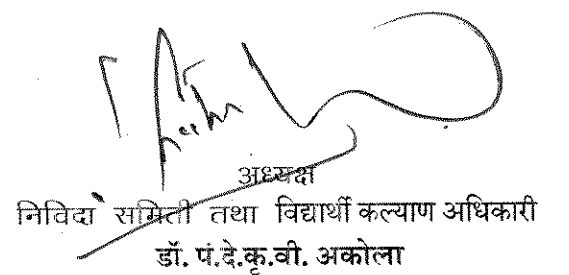 अध्यक्ष
निविदा समिती तथा विद्यार्थी कल्याण अधिकारी
डॉ. पं.दे.कृ.वी. अकोला